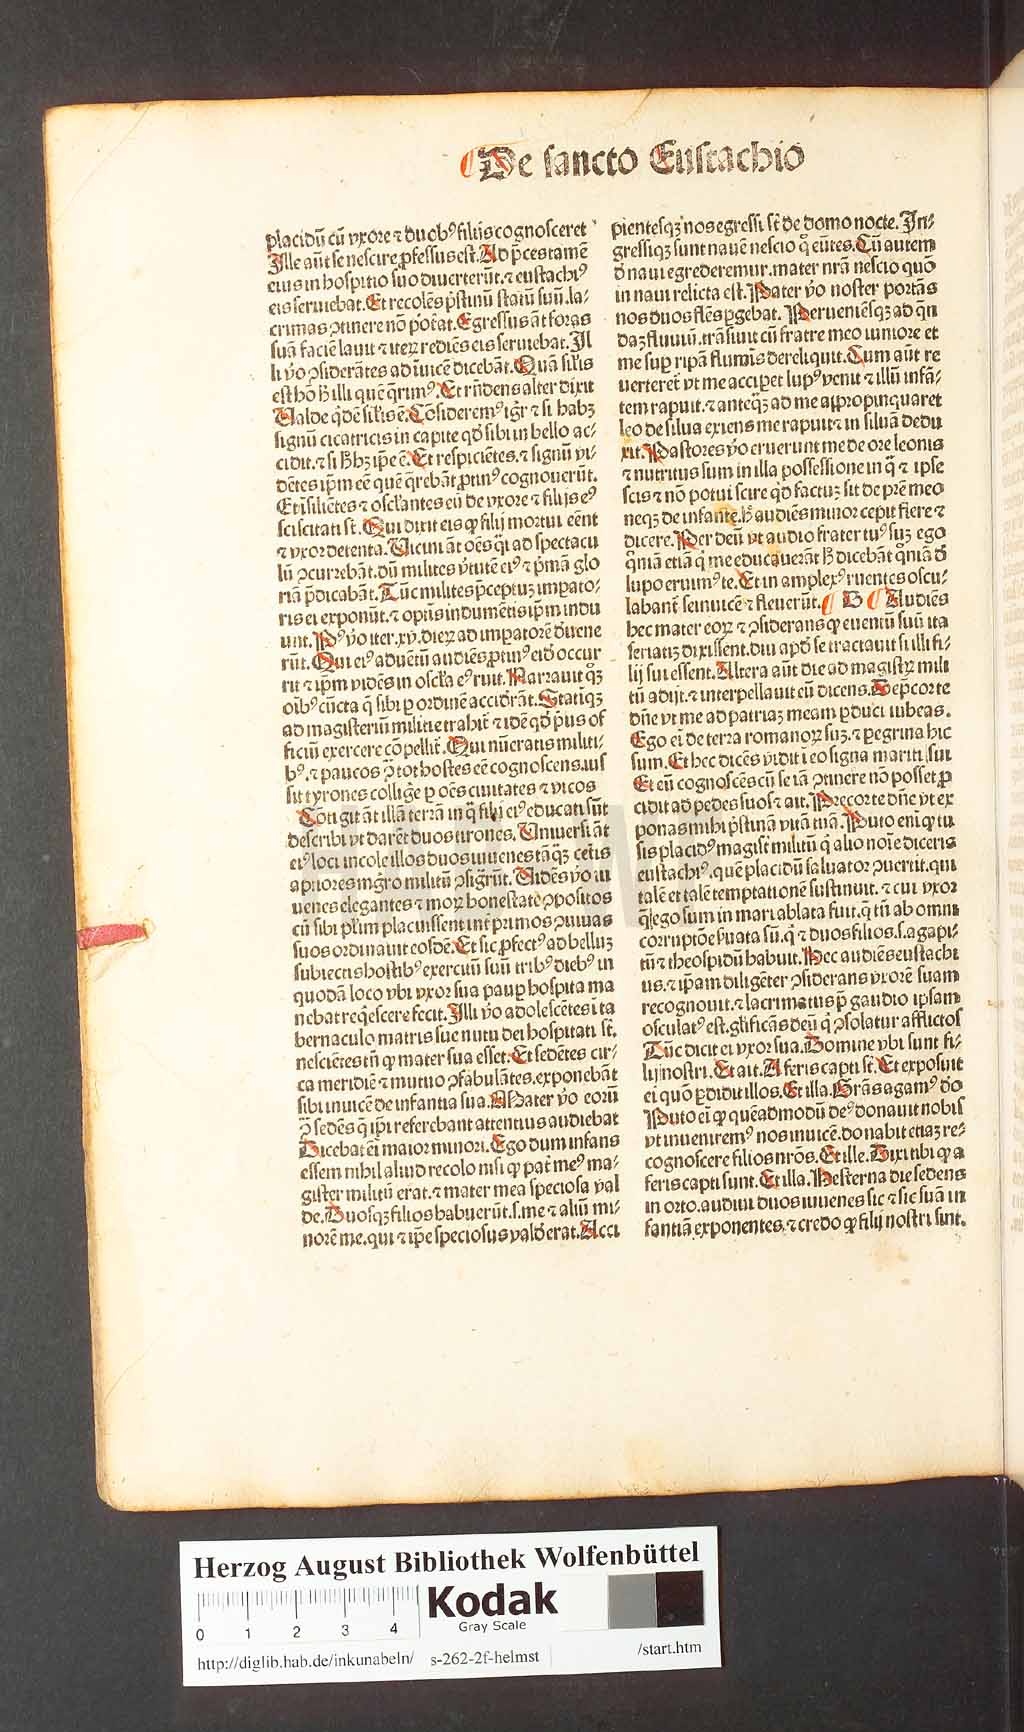 De sancto Eustachio
placidū cū vxore ⁊ duobꝰ filijs cognosceret
Ille aūt se nescire ꝓfessus est. Ad p̄ces tamē
eius in hospitio suo diuerterūt. ⁊ eustachiꝰ
eis seruiebat. Et recolēs pristinū statū suū. la⸗
crimas ꝯtinere nō poterat. Egressus āt foras
suā faciē lauit ⁊ iteꝝ rediēs eis seruiebat. Il
li v̓o ꝯsiderātes ad iuicē dicebāt. Quā silis
est hō h̓ illi quē q̄rimꝰ. Et rn̄dens alter dixit
Valde q̓dē silis ē. Cōsideremꝰ igr̄ ⁊ si habꝫ
signū cicatricis in capite qd̓ sibi in bello ac⸗
cidit. ⁊ si hꝫ ip̄e ē. Et respiciētes. ⁊ signū vi⸗
dētes ip̄m eē quē q̄rebāt ꝓtinꝰ cognouerūt.
Et īsiliētes ⁊ osclantes eū de vxore ⁊ filijs eꝰ
sciscitati st̄. Qui dixit eis ꝙ filij mortui eēnt
⁊ vxor detenta. Vicini āt oēs q̓si ad spectacu
lū ꝯcurrebāt. dū milites v̓tutē eiꝰ ⁊ p̓mā glo
riā p̄dicabāt. Tūc milites p̄ceptuꝫ impato⸗
ris ei exponūt. ⁊ optīs indumētis ip̄m indu
unt. Pꝰ v̓o iter. xv. dieꝝ ad impatorē d̓uene
rūt. Qui eiꝰ aduētū audiēs ꝓtinꝰ eid̓ occur
rit ⁊ ip̄m vidēs in oscla eꝰ ruit. Narrauit q̓ꝫ
oībꝰ cūcta q̄ sibi ꝑ ordinē accid̓rāt. Statiqꝫ
ad magisteriū militie trahit̄ ⁊ idē qd̓ p̓us of
ficiū exercere cōpellit̄. Qui nūeratis militi⸗
bꝰ. ⁊ paucos ꝓ tot hostes eē cognoscens. ius
sit tyrones collige ꝑ oēs ciuitates ⁊ vicos
Cōtigit āt illā terrā in q̄ filij eiꝰ educati sūt
describi vt daret duos tirones. Vniuersi āt
eiꝰ loci incole illos duos iuuenes tāq̓ꝫ cet̓is
aptiores mgr̄o militū ꝯsig̓rūt. Vidēs v̓o iu
uenes elegantes ⁊ moꝝ honestate ꝯpositos
cū sibi pl̓im placuissent int̓ primos ꝯuiuas
suos ordinauit eosdē. Et sic ꝓfectꝰ ad belluꝫ
subiectis hostibꝰ exercitū suū tribꝰ diebꝰ in
quodā loco vbi vxor sua paup hospita ma
nebat req̓escere fecit. Illi v̓o adolescētes ī ta
bernaculo matris sue nutu dei hospitati st̄.
nesciētes tn̄ ꝙ mater sua esset. Et sedētes cir⸗
ca meridiē ⁊ mutuo ꝯfabulātes. exponebāt
sibi inuicē de infantia sua. Mater v̓o eorū
ꝓ sedēs q̄ ip̄i referebant attentius audiebat
Dicebat ei maior minori. Ego dum infans
essem nihil aliud recolo nisi ꝙ pat̓ meꝰ ma⸗
gister militū erat. ⁊ mater mea speciosa val
de. Duosqꝫ filios habuerūt. s. me ⁊ aliū mi⸗
norē me. qui ⁊ ip̄e speciosus vald̓ erat. Acci
pientesqꝫ nos egressi st̄ de domo nocte. In⸗
gressiqꝫ sunt nauē nescio q̊ eūtes. Cū autem
d̓ naui egrederemur. mater nr̄a nescio quō
in naui relicta est. Pater v̓o noster portās
nos duos flēs ꝑgebat. Perueniēsqꝫ ad qn̄
daꝫ fluuiū. trāsiuit cū fratre meo iuniore et
me sup ripā flumis dereliquit. Cum aūt re
uerteret̄ vt me accipet lupꝰ venit ⁊ illū infā⸗
tem rapuit. ⁊ anteq̓ꝫ ad me appropinquaret
leo de silua exiens me rapuit ⁊ in siluā dedu
xit. Pastores v̓o eruerunt me de ore leonis
⁊ nutritus sum in illa possessione in q̄ ⁊ ipse
scis ⁊ nō potui scire qd̓ factuꝫ sit de prē meo
neqꝫ de infante. H̓ audiēs minor cepit flere ⁊
dicere. Per deū vt audio frater tuꝰ suꝫ ego
q̄niā etiā q̓ me educauerāt h̓ dicebāt q̄niā d̓
lupo eruimꝰ te. Et in amplexꝰ ruentes oscu⸗
labant̄ seinuicē ⁊ fleuerūt. B Audiēs
hec mater eoꝝ ⁊ ꝯsiderans ꝙ euentū suū ita
seriatī dixissent. diu apd̓ se tractauit si illi fi⸗
lij sui essent. Altera aūt die ad magistꝝ mili
tū adijt. ⁊ interpellauit eū dicens. Dep̄cor te
dn̄e vt me ad patriaꝫ meam ꝑduci iubeas.
Ego eī de terra romanoꝝ suꝫ. ⁊ ꝑegrina hic
sum. Et hec dicēs vidit ī eo signa mariti sui
Et eū cognoscēs cū se iā ꝯtinere nō posset ꝓ
cidit ad pedes suos ⁊ ait. Precor te dn̄e vt ex
ponas mihi p̓stinā vitā tuā. Puto eni ꝙ tu
sis placidꝰ magist̓ militū q̓ alio noīe diceris
eustachiꝰ. quē placidū saluator ꝯuertit. qui
talē et talē temptationē sustinuit. ⁊ cui vxor
q̄ ego sum in mari ablata fuit. q̄ tn̄ ab omni
corruptōe s̓uata sū. q̓ ⁊ duos filios. s. agapi⸗
tū ⁊ theospitū habuit. Hec audiēs eustachi
us. ⁊ ip̄am diligēter ꝯsiderans vxorē suam
recognouit. ⁊ lacrimatus p̄ gaudio ipsam
osculatꝰ est. glificās deū q̓ ꝯsolatur afflictos
Tūc dicit ei vxor sua. Domine vbi sunt fi⸗
lij nostri. Et ait. A feris capti st̄. Et exposuit
ei quō ꝑdidit illos. Et illa. Gr̄as agamꝰ dō
Puto eī ꝙ quēadmodū deꝰ donauit nobis
vt inueniremꝰ nos inuicē. donabit etiaꝫ re⸗
cognoscere filios nr̄os. Et ille. Dixi tibi ꝙ a
feris capti sunt. Et illa. Hesterna die sedens
in orto. audiui duos iuuenes sic ⁊ sic suā in
fantiā exponentes. ⁊ credo ꝙ filij nostri sint.
HAB WF
Herzog August Bibliothek Wolfenbüttel
0 1 2 3 4
Kodak
Gray Scale
http://diglib.hab.de/inkunabeln/ s-262-2f-helmst /start.htm